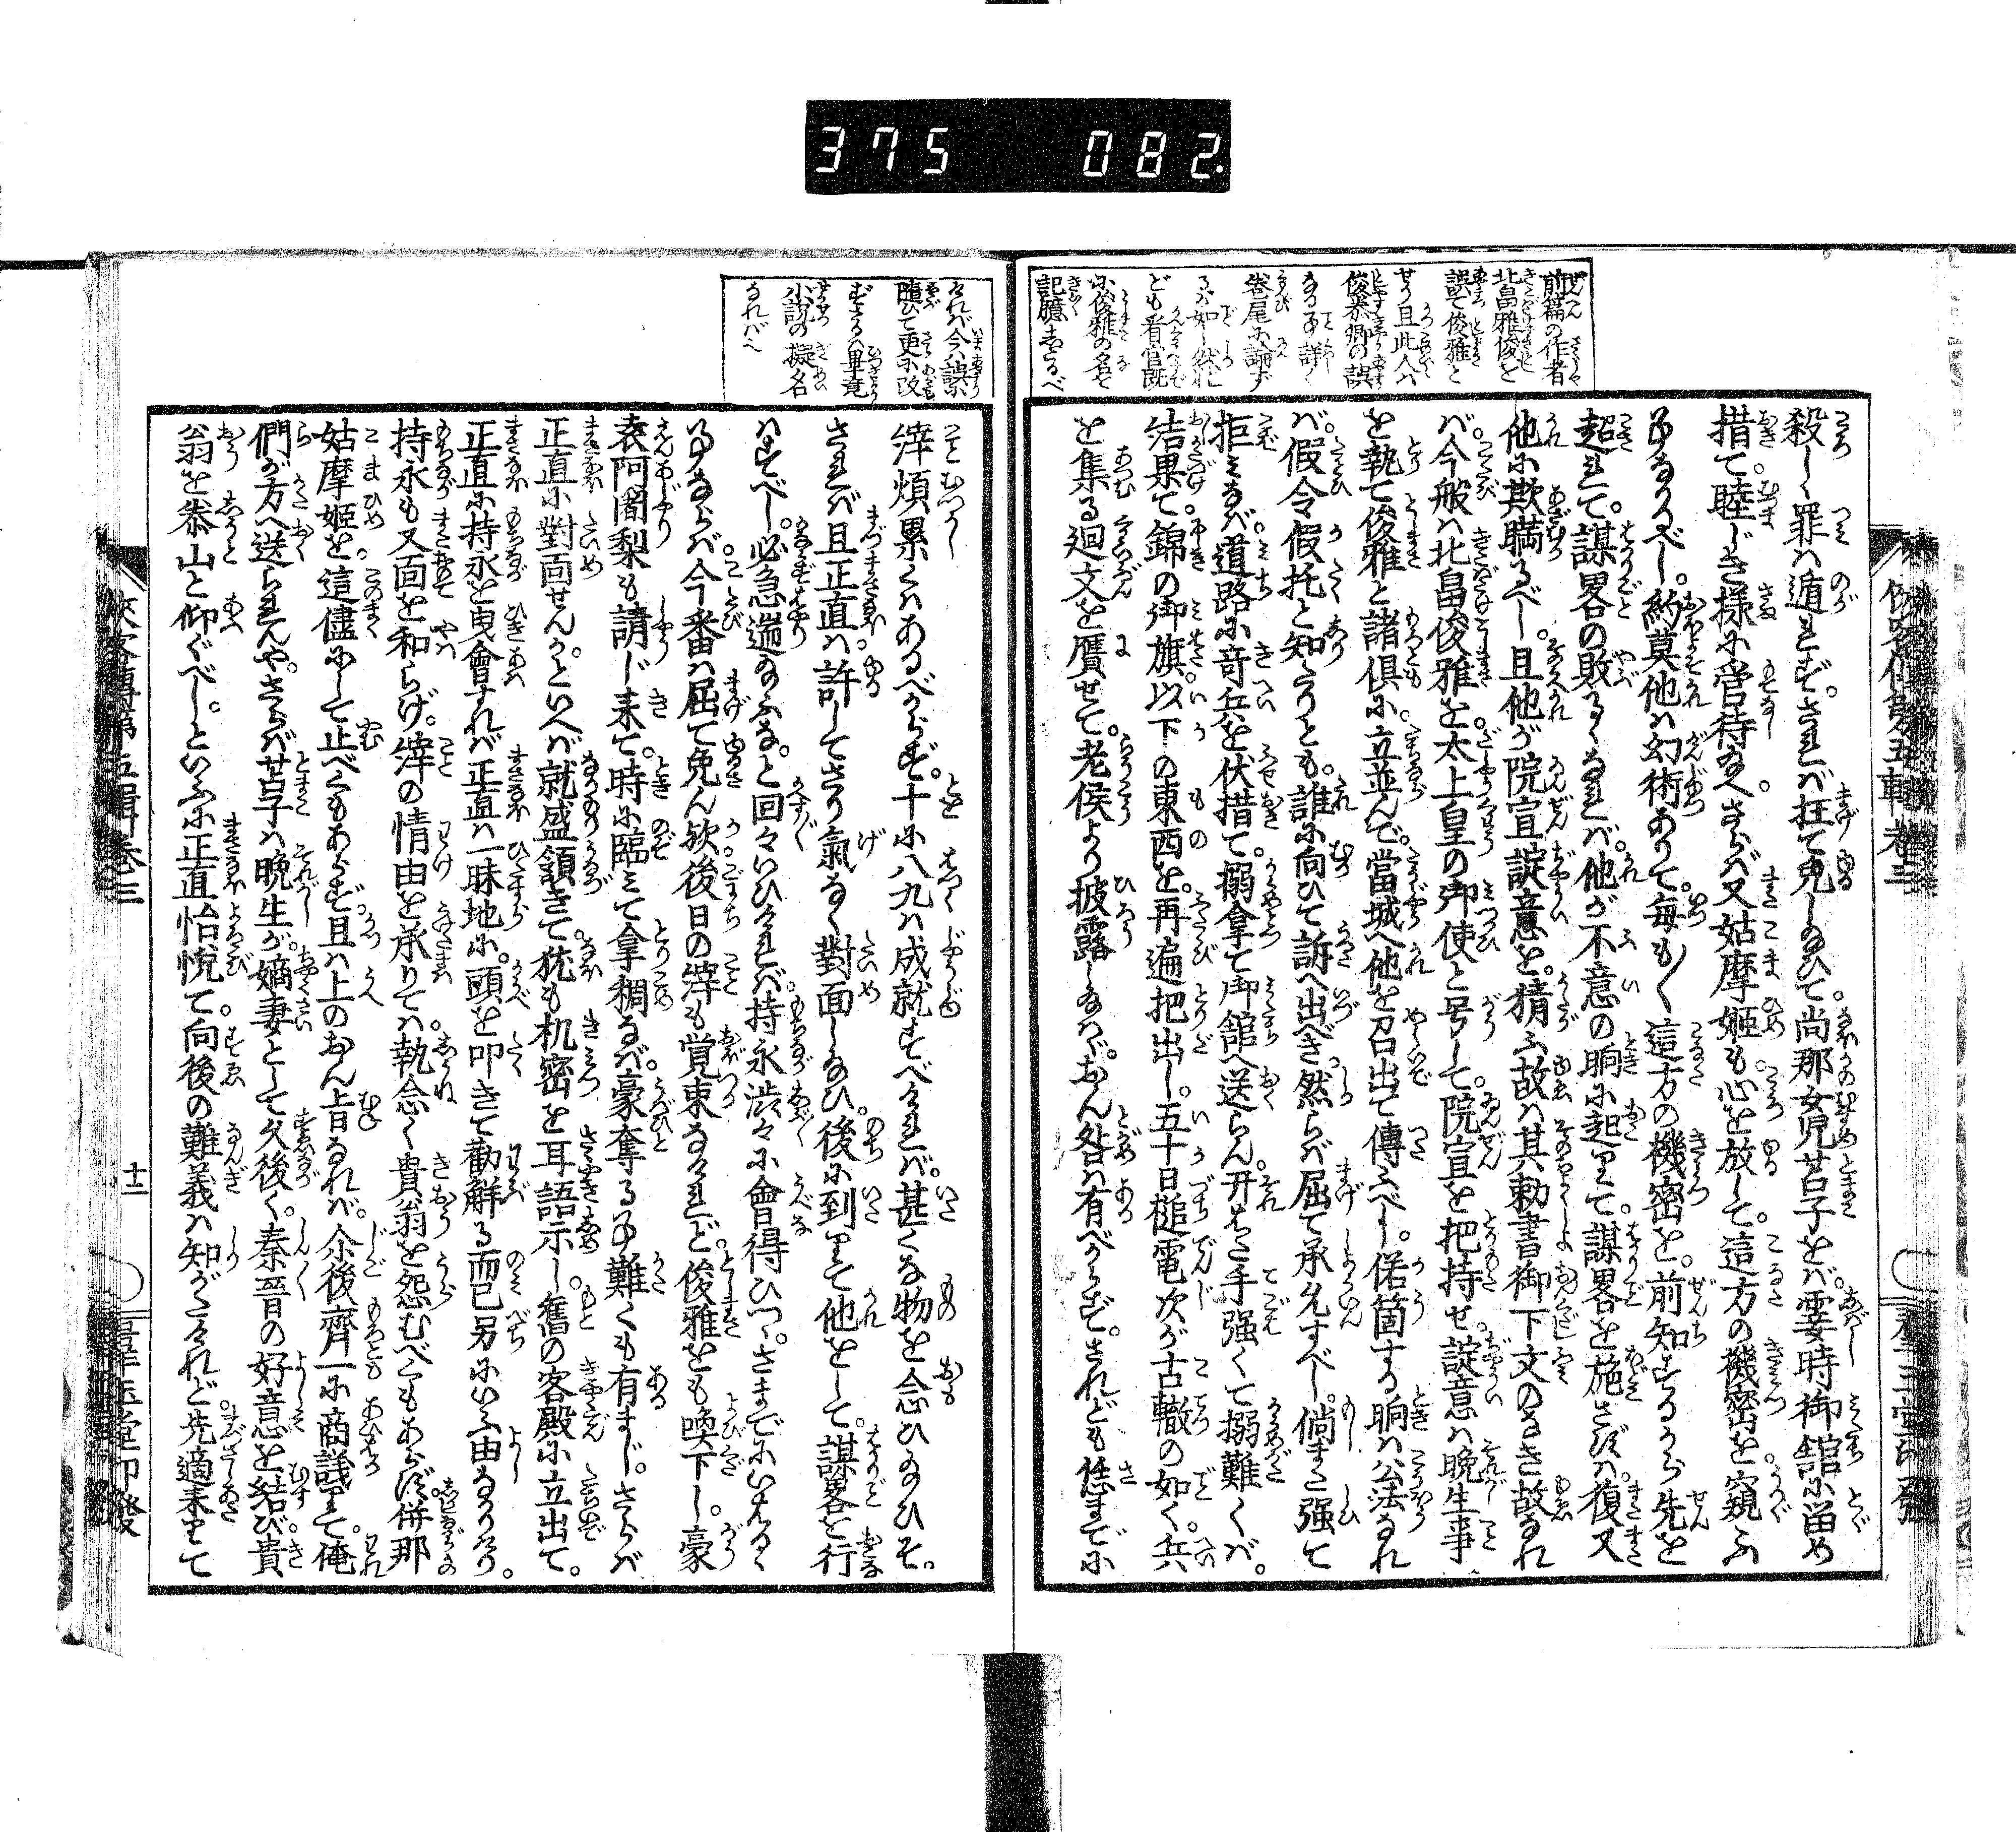 375 082.
前篇の作者
北畠雅俊を
誤て俊雅と
せり且此人は
俊泰卿の誤
なる事詳く
巻尾に論ず
るが如し然れ
ども看官既
に俊雅の名を
記臆したるべ
殺しゝ罪は遁れず。されば枉て免し給ひて。尚那女児苫子をば。霎時御舘に留め
措て。睦じき様に管待給へ。さらば又姑摩姫も心を放して。這方の機密を窺ふ
事なかるべし。約莫他は幻術ありて。毎も〳〵這方の機密を。前知するから先を
超されて。謀畧の敗るゝなれば。他が不意の晌に起りて。謀畧を施さずは。復又
他に欺瞞るべし。且他が院宣諚意を。猜ふ故は其勅書御下文のなき故なれ
ば。今般は北畠俊雅を。太上皇の御使と号して。院宣を把持せ。諚意は晩生事
を執て俊雅と諸倶に。立並んで。當城へ他を召出て傳ふべし。偌箇する晌は公法なれ
ば。假令假托と知るとも。誰に向ひて訴へ出べき。然らば屈て承允すべし。倘まさ強て
拒みなば。道路に竒兵を伏措て。搦拿て御舘へ送らん。开はた手強くて搦難くば。
結果て。錦の御旗以下の東西を。再遍把出し。五十日槌電次が古轍の如く。兵
を集る廻文を贋せて。老侯より披露し給はゞ。おん咎は有べからず。されども恁までに
侠客傳第五輯巻三
群玉堂印發
なれば今は誤に
隨ひて更に改
ずそは畢竟
小説の擬名
なればへ
縡煩累くはあるべからず。十に八九は成就すべければ。甚くな物を念ひ給ひそ。
さらば且正直は。許してさり氣なく對面し給ひ。後に到りて他をして。謀畧を行
はすべし。必急遽給ふな。と回々いひければ。持永渋々に會得ひつ。さまでにいはるゝ
事ならば。今番は屈て免ん歟。後日の縡も覚束なけれど。俊雅をも喚下し。豪
奏阿闍梨も請じ来て。時に臨みて拿稠なば。豪奪る事難くも有まじ。さらば
正直に對面せん。といへば就盛頷きて。猶も机密を耳語示し。舊の客殿に立出て。
正直に持永を曳會すれば正直は一昧地に。頭を叩きて勸解る而已另にいふ由なかりけり。
持永も又面を和らげ。縡の情由を承りては。執念く貴翁を怨むべくもあらず。併那
姑摩姫を。這儘にして止べくもあらず。且は上のおん旨なれば。尓後齊一に商議て。俺
們が方へ送られんや。さらば苫子は晩生が。嫡妻として久後く。秦晋の好意を結び。貴
翁を泰山と仰ぐべし。といふに正直怡悦て。向後の難義は知がたけれど。先適来たて
侠客傳第五輯巻三
十二
群玉堂印發